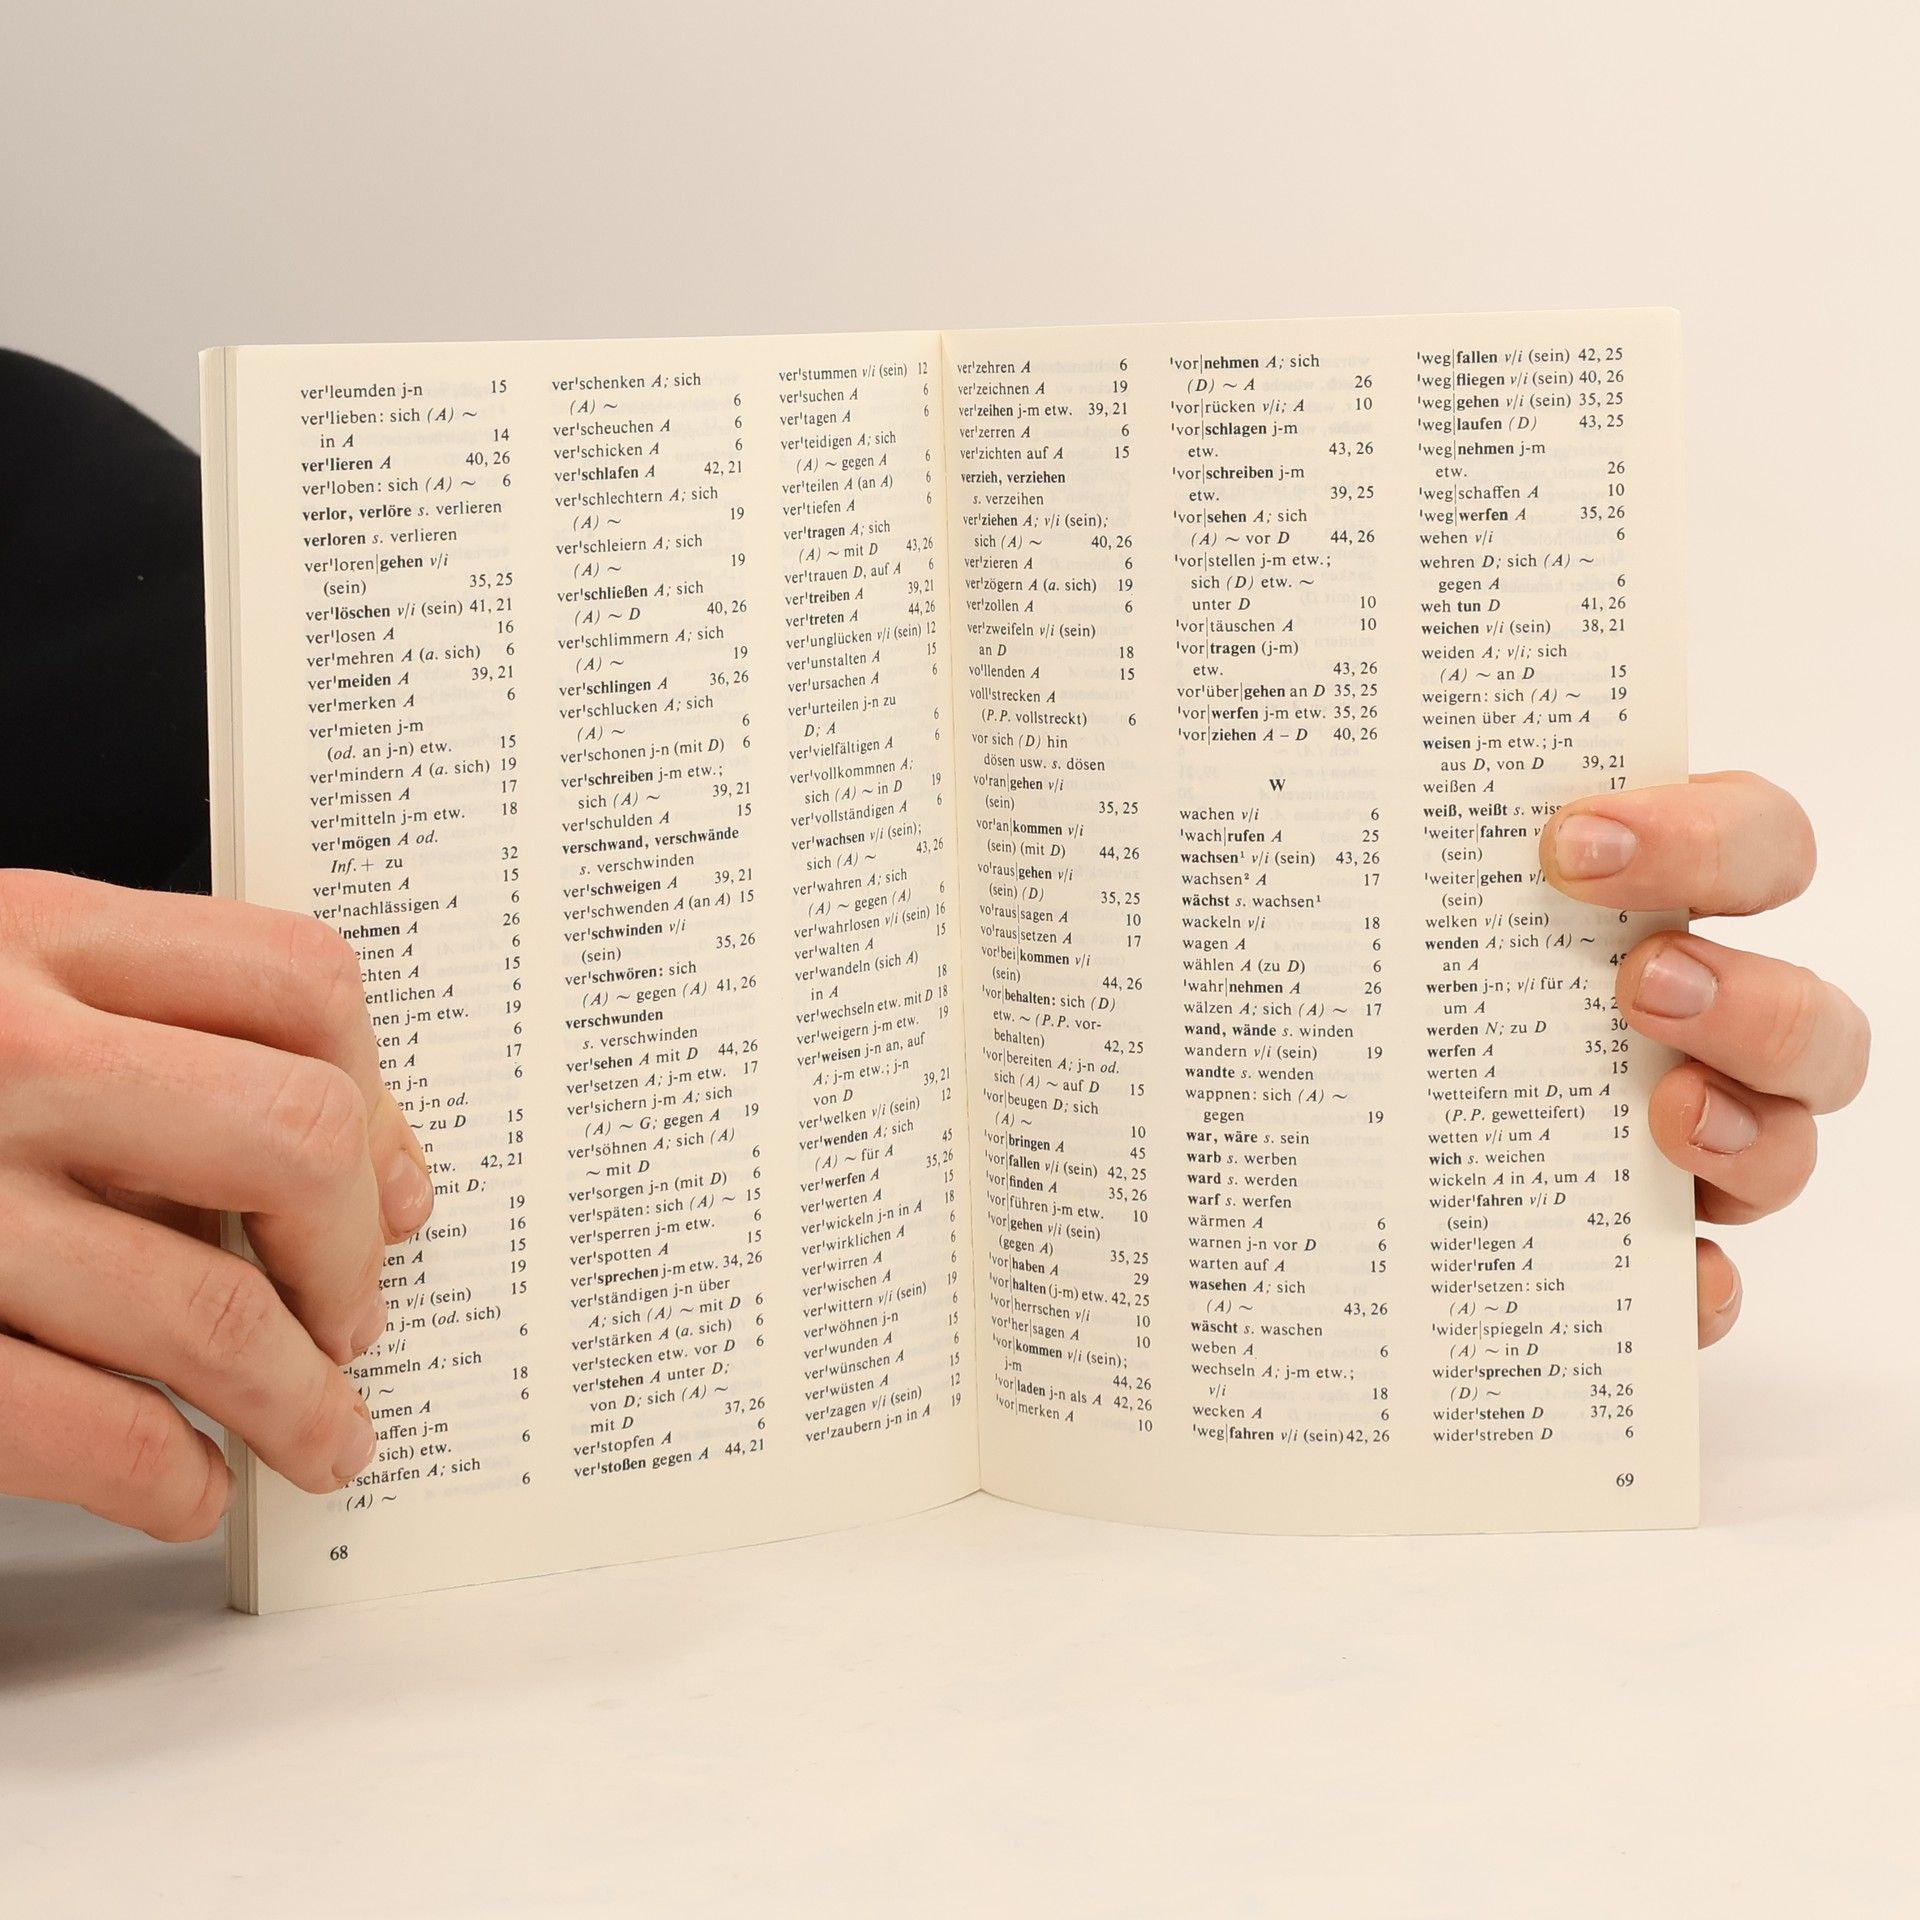 ver'leumden j-n 15
ver'lieben: sich (A) ~
in A 14
ver'lieren A 40, 26
ver'loben: sich (A) ~ 6
verlor, verlöre s. verlieren
verloren s. verlieren
ver'loren|gehen v/i
(sein) 35, 25
ver'löschen v/i (sein) 41, 21
ver'losen A 16
ver'mehren A (a. sich) 6
ver'meiden A 39, 21
ver'merken A 6
ver'mieten j-m
(od. an j-n) etw. 15
ver'mindern A (a. sich) 19
ver'missen A 17
ver'mitteln j-m etw. 18
ver'mögen A od.
Inf. + zu 32
ver'muten A 15
ver'nachlässigen A 6
'nehmen A 26
einen A 6
chten A 15
entlichen A 6
nen j-m etw. 19
ken A 6
en A 17
en j-n 6
en j-n od.
~ zu D 15
-n 18
etw. 42, 21
mit D;
19
/i (sein) 16
ten A 15
gern A 19
en v/i (sein) 15
n j-m (od. sich)
.; v/i 6
'sammeln A; sich
) ~ 18
umen A 6
haffen j-m
sich) etw. 6
'schärfen A; sich
(A) ~ 6
ver'schenken A; sich
(A) ~ 6
ver'scheuchen A 6
ver'schicken A 6
ver'schlafen A 42, 21
ver'schlechtern A; sich
(A) ~ 19
ver'schleiern A; sich
(A) ~ 19
ver'schließen A; sich
(A) ~ D 40, 26
ver'schlimmern A; sich
(A) ~ 19
ver'schlingen A 36, 26
ver'schlucken A; sich
(A) ~ 6
ver'schonen j-n (mit D) 6
ver'schreiben j-m etw.;
sich (A) ~ 39, 21
ver'schulden A 15
verschwand, verschwände
s. verschwinden
ver'schweigen A 39, 21
ver'schwenden A (an A) 15
ver'schwinden v/i
(sein) 35, 26
ver'schwören: sich
(A) ~ gegen (A) 41, 26
verschwunden
s. verschwinden
ver'sehen A mit D 44, 26
ver'setzen A; j-m etw. 17
ver'sichern j-m A; sich
(A) ~ G; gegen A 19
ver'söhnen A; sich (A)
~ mit D 6
ver'sorgen j-n (mit D) 6
ver'späten: sich (A) ~ 15
ver'sperren j-m etw. 6
ver'spotten A 15
ver'sprechen j-m etw. 34, 26
ver'ständigen j-n über
A; sich (A) ~ mit D 6
ver'stärken A (a. sich) 6
ver'stecken etw. vor D 6
ver'stehen A unter D;
von D; sich (A) ~
mit D 37, 26
ver'stopfen A 6
ver'stoßen gegen A 44, 21
ver'stummen v/i (sein) 12
ver'suchen A 6
ver'tagen A 6
ver'teidigen A; sich
(A) ~ gegen A 6
ver'teilen A (an A) 6
ver'tiefen A 6
ver'tragen A; sich
(A) ~ mit D 43, 26
ver'trauen D, auf A 6
ver'treiben A 39, 21
ver'treten A 44, 26
ver'unglücken v/i (sein) 12
ver'unstalten A 15
ver'ursachen A 6
ver'urteilen j-n zu
D; A 6
ver'vielfältigen A 6
ver'vollkommnen A;
sich (A) ~ in D 19
ver'vollständigen A 6
ver'wachsen v/i (sein);
sich (A) ~ 43, 26
ver'wahren A; sich
(A) ~ gegen (A) 6
ver'wahrlosen v/i (sein) 16
ver'walten A 15
ver'wandeln (sich A)
in A 18
ver'wechseln etw. mit D 18
ver'weigern j-m etw. 19
ver'weisen j-n an, auf
A; j-m etw.; j-n
von D 39, 21
ver'welken v/i (sein) 12
ver'wenden A; sich
(A) ~ für A 45
ver'werfen A 35, 26
ver'werten A 15
ver'wickeln j-n in A 18
ver'wirklichen A 6
ver'wirren A 6
ver'wischen A 6
ver'wittern v/i (sein) 19
ver'wöhnen j-n 6
ver'wunden A 15
ver'wünschen A 6
ver'wüsten A 15
ver'zagen v/i (sein) 12
ver'zaubern j-n in A 19
68
ver'zehren A 6
ver'zeichnen A 19
ver'zeihen j-m etw. 39, 21
ver'zerren A 6
ver'zichten auf A 15
verzieh, verziehen
s. verzeihen
ver'ziehen A; v/i (sein);
sich (A) ~ 40, 26
ver'zieren A 6
ver'zögern A (a. sich) 19
ver'zollen A 6
ver'zweifeln v/i (sein)
an D 18
vo'llenden A 15
voll'strecken A
(P.P. vollstreckt) 6
vor sich (D) hin
dösen usw. s. dösen
vo'ran|gehen v/i
(sein) 35, 25
vor'an|kommen v/i
(sein) (mit D) 44, 26
vo'raus|gehen v/i
(sein) (D) 35, 25
vo'raus|sagen A 10
vo'raus|setzen A 17
vor'bei|kommen v/i
(sein) 44, 26
'vor|behalten: sich (D)
etw. ~ (P.P. vor-
behalten) 42, 25
'vor|bereiten A; j-n od.
sich (A) ~ auf D 15
'vor|beugen D; sich
(A) ~ 10
'vor|bringen A 45
'vor|fallen v/i (sein) 42, 25
'vor|finden A 35, 26
'vor|führen j-m etw. 10
'vor|gehen v/i (sein)
(gegen A) 35, 25
'vor|haben A 29
'vor|halten (j-m) etw. 42, 25
'vor|herrschen v/i 10
'vor'her|sagen A 10
'vor|kommen v/i (sein);
j-m 44, 26
'vor|laden j-n als A 42, 26
'vor|merken A 10
'vor|nehmen A; sich
(D) ~ A 26
'vor|rücken v/i; A 10
'vor|schlagen j-m
etw. 43, 26
'vor|schreiben j-m
etw. 39, 25
'vor|sehen A; sich
(A) ~ vor D 44, 26
'vor|stellen j-m etw.;
sich (D) etw. ~
unter D 10
'vor|täuschen A 10
'vor|tragen (j-m)
etw. 43, 26
vor'über|gehen an D 35, 25
'vor|werfen j-m etw. 35, 26
'vor|ziehen A – D 40, 26
W
wachen v/i 6
'wach|rufen A 25
wachsen¹ v/i (sein) 43, 26
wachsen² A 17
wächst s. wachsen¹
wackeln v/i 18
wagen A 6
wählen A (zu D) 6
'wahr|nehmen A 26
wälzen A; sich (A) ~ 17
wand, wände s. winden
wandern v/i (sein) 19
wandte s. wenden
wappnen: sich (A) ~
gegen 19
war, wäre s. sein
warb s. werben
ward s. werden
warf s. werfen
wärmen A 6
warnen j-n vor D 6
warten auf A 15
wasehen A; sich
(A) ~ 43, 26
wäscht s. waschen
weben A 6
wechseln A; j-m etw.;
v/i 18
wecken A 6
'weg|fahren v/i (sein) 42, 26
'weg|fallen v/i (sein) 42, 25
'weg|fliegen v/i (sein) 40, 26
'weg|gehen v/i (sein) 35, 25
'weg|laufen (D) 43, 25
'weg|nehmen j-m
etw. 26
'weg|schaffen A 10
'weg|werfen A 35, 26
wehen v/i 6
wehren D; sich (A) ~
gegen A 6
weh tun D 41, 26
weichen v/i (sein) 38, 21
weiden A; v/i; sich
(A) ~ an D 15
weigern: sich (A) ~ 19
weinen über A; um A 6
weisen j-m etw.; j-n
aus D, von D 39, 21
weißen A 17
weiß, weißt s. wiss
'weiter|fahren v
(sein)
'weiter|gehen v/
(sein)
welken v/i (sein) 6
wenden A; sich (A) ~
an A 45
werben j-n; v/i für A;
um A 34, 2
werden N; zu D 30
werfen A 35, 26
werten A 15
'wetteifern mit D, um A
(P.P. gewetteifert) 19
wetten v/i um A 15
wich s. weichen
wickeln A in A, um A 18
wider'fahren v/i D
(sein) 42, 26
wider'legen A 6
wider'rufen A 21
wider'setzen: sich
(A) ~ D 17
'wider|spiegeln A; sich
(A) ~ in D 18
wider'sprechen D; sich
(D) ~ 34, 26
wider'stehen D 37, 26
wider'streben D 6
69